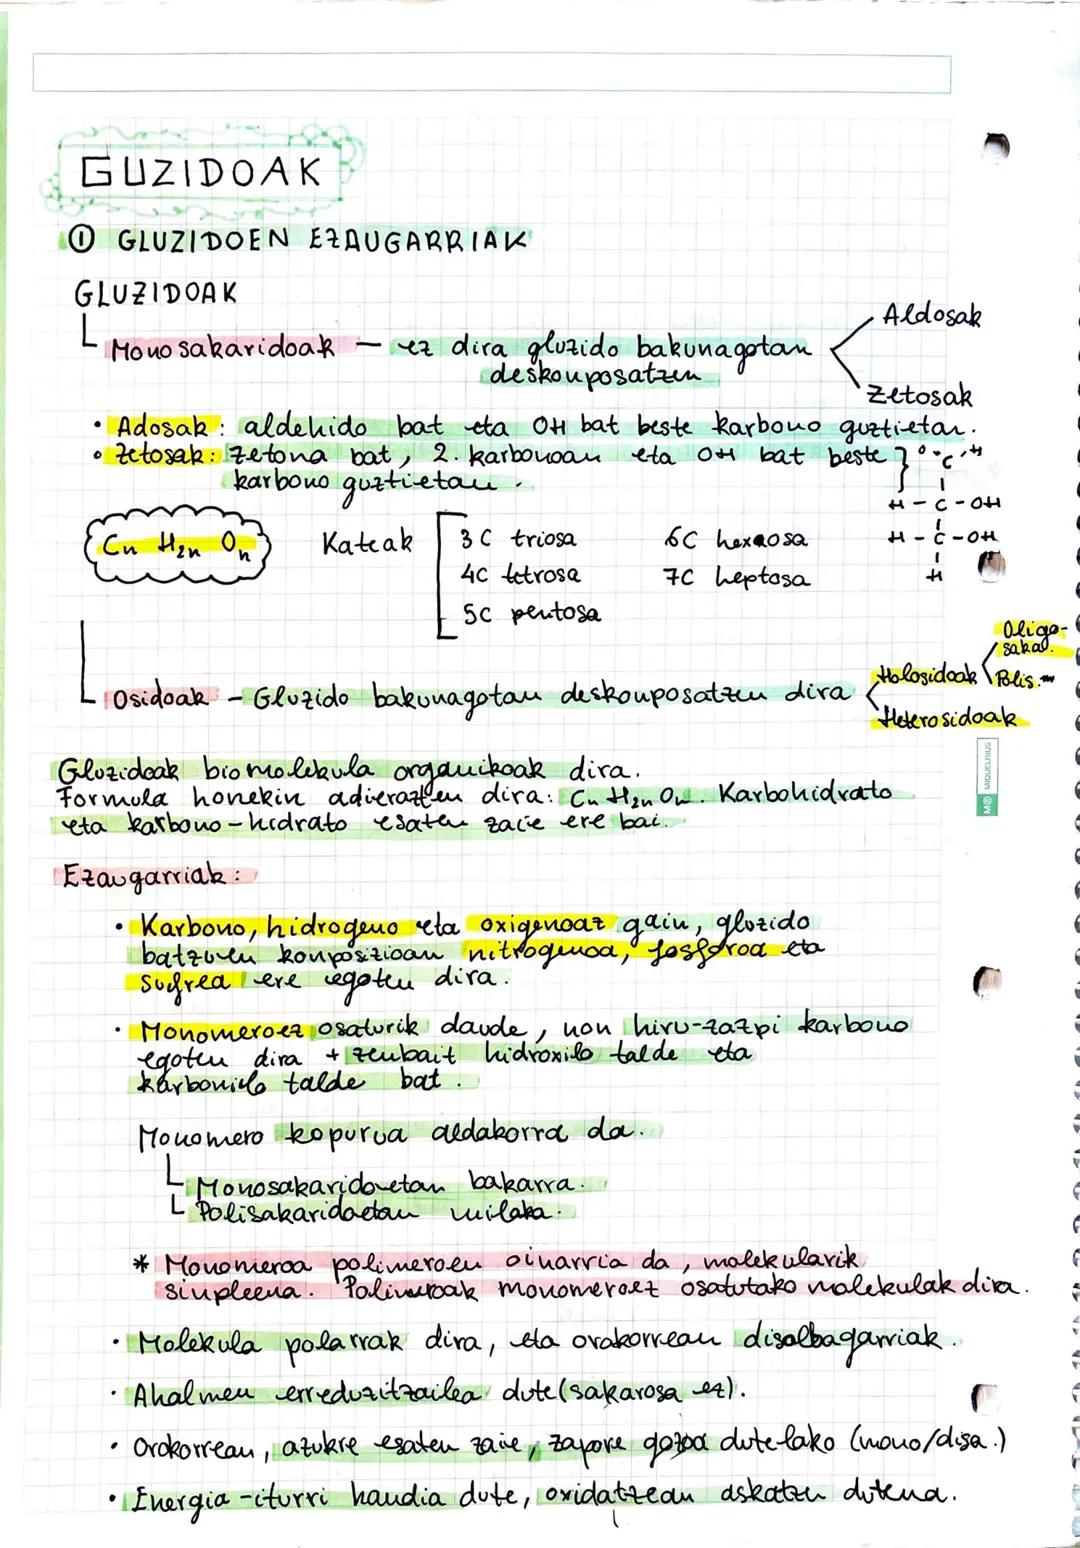 GUZIDOAK
① GLUZIDOEN EZAUGARRIAK
GLUZIDOAK
Monosakaridoak — ez dira gluzido bakunagotan
deskonposatzen
Aldosak
Zetosak
• Adosak: aldehido bat eta OH bat beste karbono guztietan.
• Zetosak: Zetona bat, 2. karbonoan eta OH bat beste
karbono guztietan.
O C H
H - C - OH
H - C - OH
H
Cn H2n On
Kateak
3C triosa
4C tetrosa
5C pentosa
6C hexosa
7C heptosa
Osidoak - Gluzido bakunagotan deskonposatzen dira
Holosidoak
Oligo-
sakar.
Polis.
Heterosidoak
MIQUELRIUS
Gluzidoak biomolekula organikoak dira.
Formula honekin adierazten dira: Cn H2n On. Karbohidrato
eta karbono-hidrato esaten zaie ere bai.
Ezaugarriak:
• Karbono, hidrogeno eta oxigenoaz gain, gluzido
batzuen konposizioan nitrogenoa, fosforoa eta
sufrea ere egoten dira.
• Monomeroez osaturik daude, non hiru-zazpi karbono
egoten dira + zenbait hidroxilo talde eta
karbonilo talde bat.
Monomero kopurua aldakorra da.
Monosakaridoetan bakarra.
Polisakaridoetan milaka.
* Monomeroa polimeroen oinarria da, molekularik
sinpleena. Polimeroak monomeroez osatutako molekulak dira.
• Molekula polarrak dira, eta orokorrean disolbagarriak.
• Ahalmen erreduzitzailea dute (sakarosa ez).
• Orokorrean, azukre esaten zaie, zapore gozoa dutelako (mono/disa.)
• Energia-iturri handia dute, oxidatzean askatzen dutena.